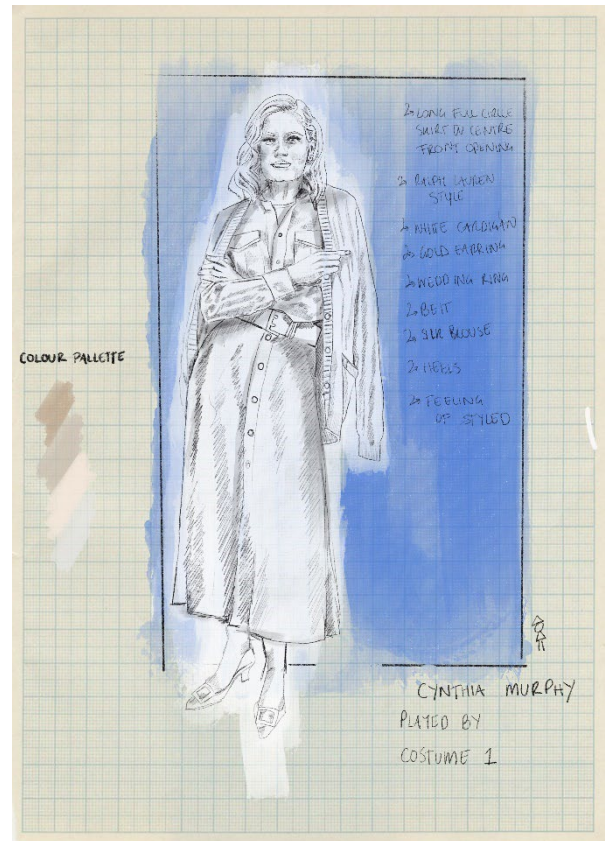 LONG FULL CIRCLE
SKIRT IN CENTRE
FRONT OPENING
RALPH LAUREN
STYLE
WHITE CARDIGAN
GOLD EARRING
WEDDING RING
BELT
SILK BLOUSE
HEELS
FEELING
OF STYLED
COLOUR PALLETTE
CYNTHIA MURPHY
PLAYED BY
COSTUME 1